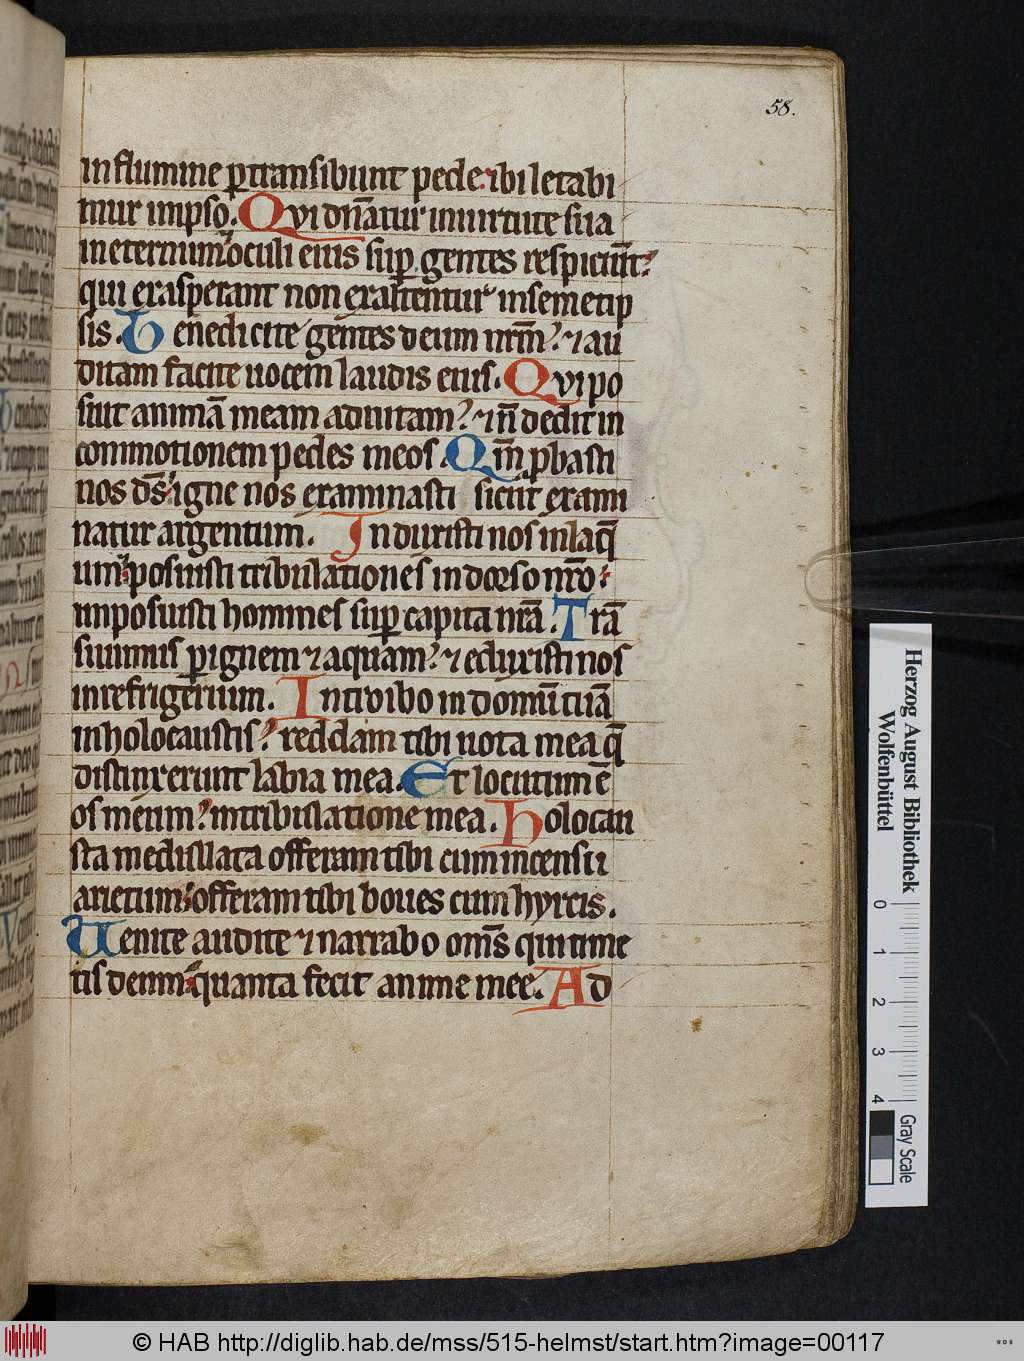 58.
in flumine ꝑtransibunt pede: ibi letabi
mur in ipso. Qui dn̄atur in uirtute sua
in eternum oculi eius sup̱ gentes respiciūt:
qui exasperant non exaltentur in semetip
sis. Benedicite gentes deum nr̄m: ⁊ au
ditam facite uocem laudis eius. Qui po
suit animā meam ad uitam: ⁊ n̄ dedit in
commotionem pedes meos. Qm̄ ꝓbasti
nos dēs: igne nos examinasti sicut exami
natur argentum. Induxisti nos in laq̄
um: posuisti tribulationes in dorso nr̄o:
imposuisti homines sup̱ capita nr̄a. Trā
siuimus ꝑ ignem ⁊ aquam: ⁊ eduxisti nos
in refrigerium. Introibo in domū tuā
in holocaustis: reddam tibi uota mea q̄
distinxerunt labia mea. Et locutum ē
os meum: in tribulatione mea. Holocau
sta medullata offeram tibi cum incensu
arietum: offeram tibi boues cum hyrcis.
Uenite audite ⁊ narrabo om̄s qui time
tis deum: quanta fecit anime mee. Ad
Herzog August Bibliothek
Wolfenbüttel
0 1 2 3 4
Gray Scale
© HAB http://diglib.hab.de/mss/515-helmst/start.htm?image=00117